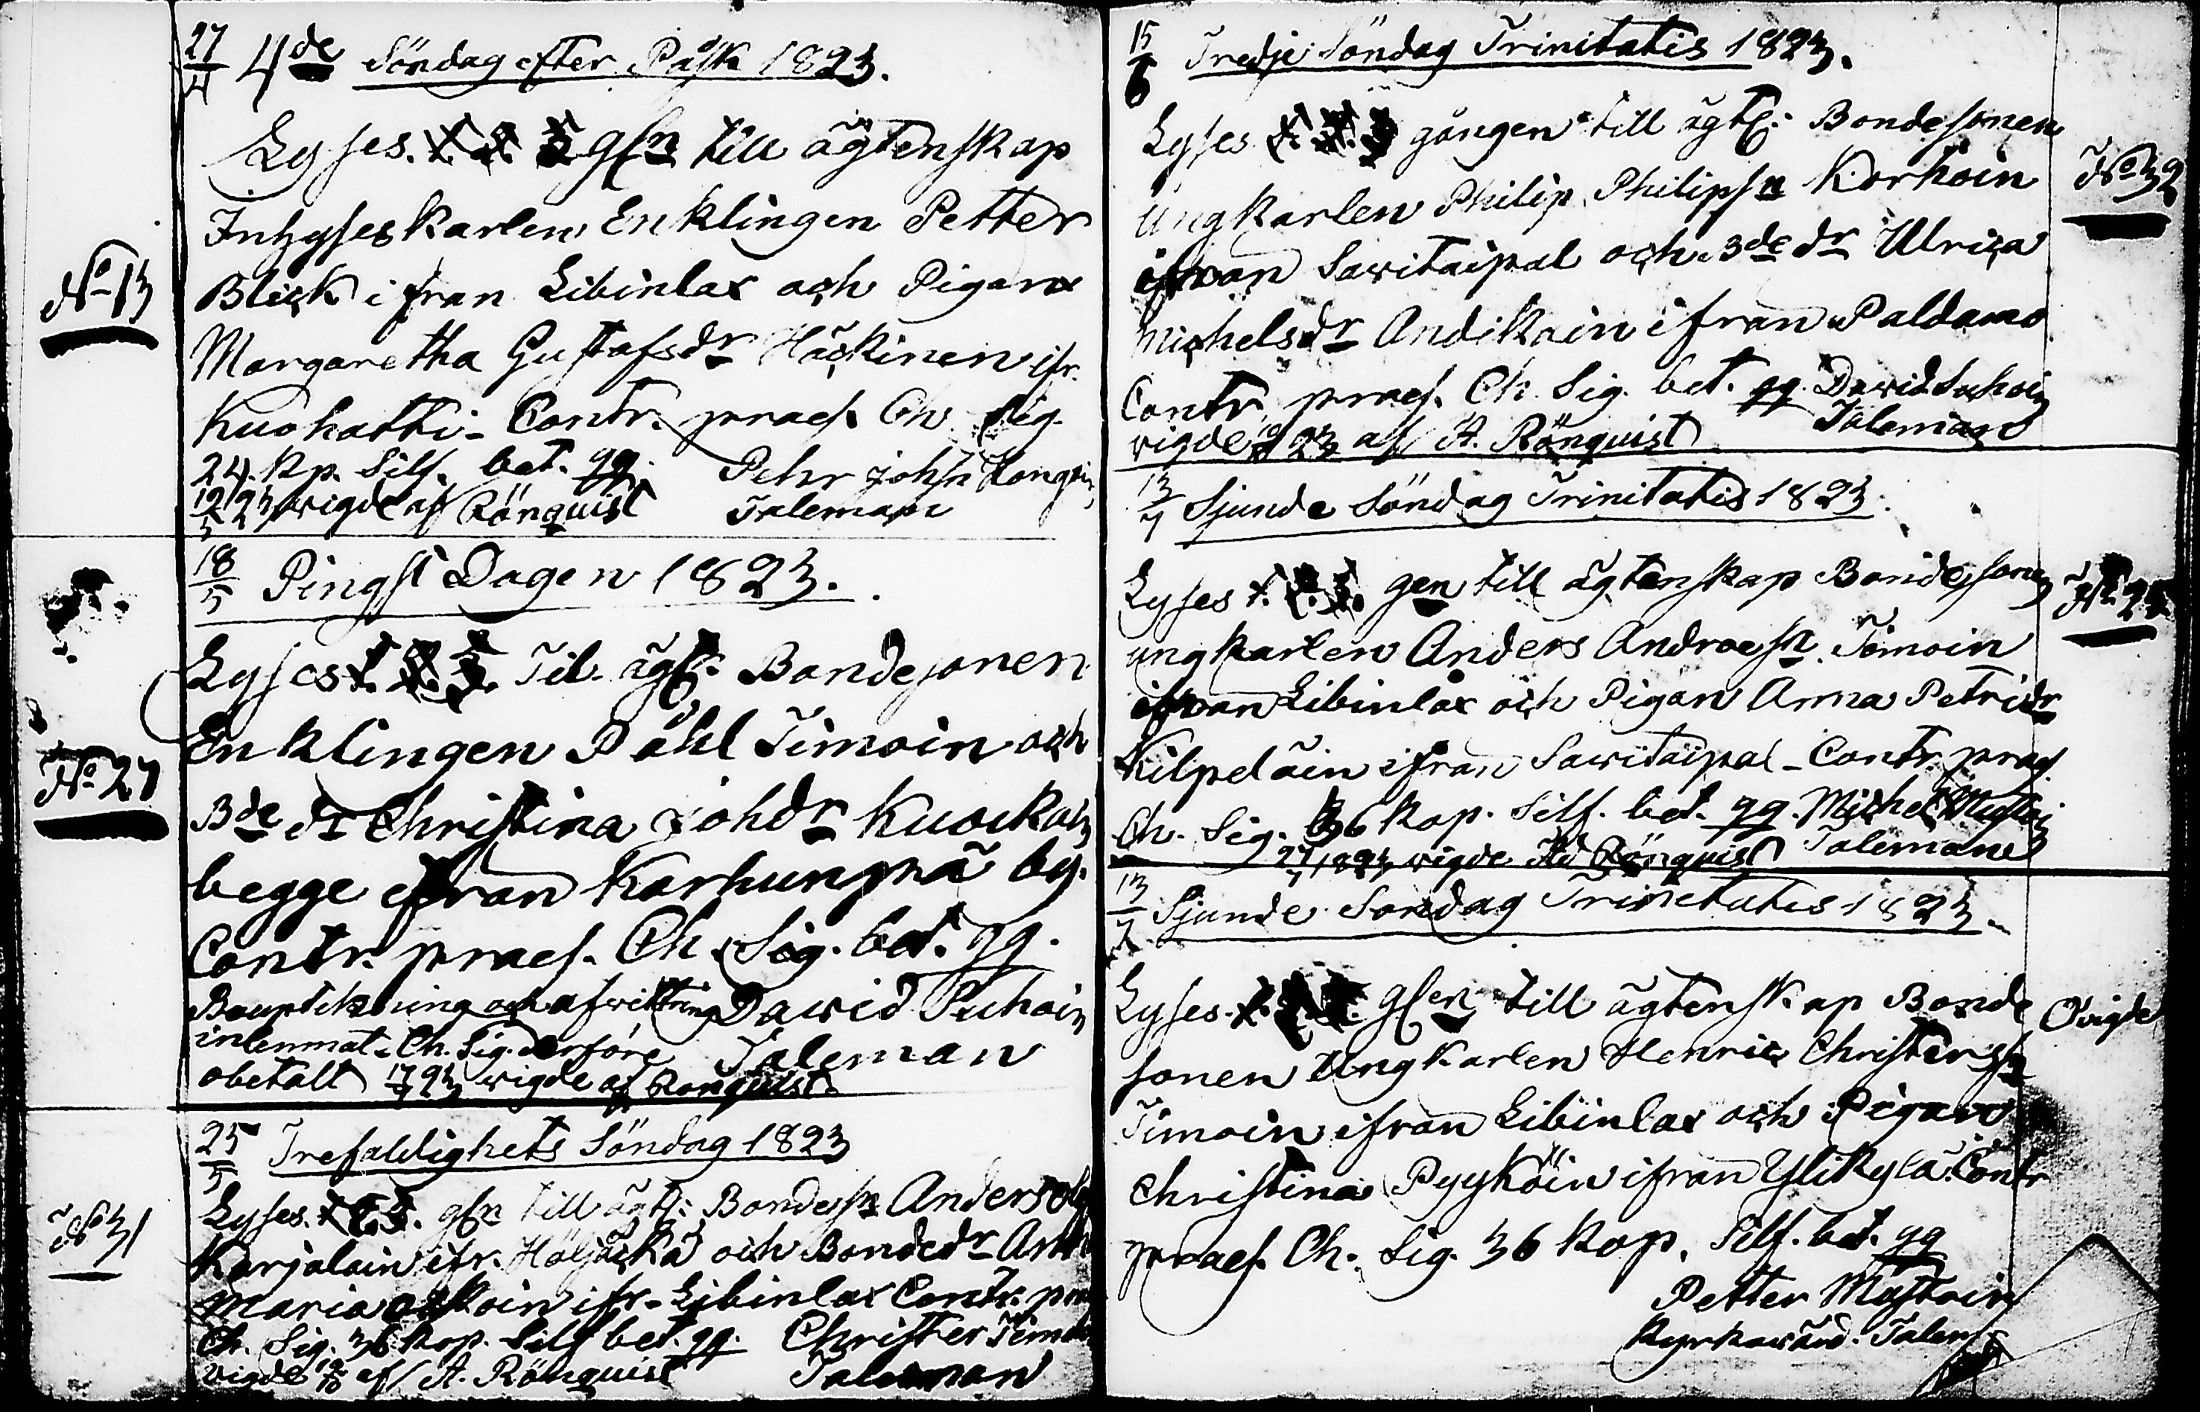 27/4 4de Söndag efter Påsk 1823.
Lyses. 1. 2. 3 gsn till ägtenskap
Inhyseskarlen Enklingen Petter
No 13
Blick ifran Libinlax och Pigan
Margaretha Gustafsdr Häckinen ifr.
Kuohatti - Contr. praes. Ch. Sig.
24. kp. Silf. bet. qq. Pehr Johsn
19/5 23 wigde af Rönquist Taleman
18/5 Pingst Dagen 1823.
Lyses 1. 2. 3. Til ägt: Bondesonen
Enklingen Påhl Timoin och
No 27
Bde dr Christina Johdr
begge ifran Karhunpää by.
Contr. praes. Ch. Sig. bet. qq.
och afwittring Dawid Puhoin
inlemnat. Ch. Sig. derföre Taleman
obetalt 17/7 23 wigde af Ronquist
25/5 Trefaldighets Söndag 1823
Lyses. 1. 2. 3. gsn till ägt: Bondesn Anders
No 31
Karjalain ifr. Höljäckä och Bondedr
Maria ifr. Libinlax Contr.
Ch. Sig. 36 kop. Silf bet. qq. Christer
vigde 19/10 af A. Rönquist Taleman
15/6 Tredje Söndag Trinitatis 1823.
Lyses 1. 2. 3 gången till ägt: Bondesonen
Ungkarlen Philip Philipsn Korhoin
No 32
ifran Sawitaipal och 3de dr Ulrica
Michelsdr Andikain ifran Paldamo
Contr. praes. Ch. Sig. bet. qq. Dawid
wigde 23 af A. Rönquist Taleman
13/7 Sjunde Söndag Trinitatis 1823.
Lyses 1. 2. 3. gen till ägtenskap Bondesonen
Ungkarlen Anders Andraesn Timoin
ifran Libinlax och Pigan Anna Petridr
Kilpeläin ifran Sawitaipal - Contr. praes.
Ch. Sig. 36 kop. Silf. bet. qq. Michel
wigde Rönquist Taleman
13/7 Sjunde Sondag Trinitatis 1823.
Lyses. 1. 2. 3. gsen till ägtenskap Bonde
Ovigde
sonen Ungkarlen Henric Christersn
Timoin ifran Libinlax och Pigan
Christina Pyyköin ifran Ylikylä. Contr
praes. Ch. Sig. 36 kop. Silf. bet. qq
Petter Mustoin
Kyrkowärd.